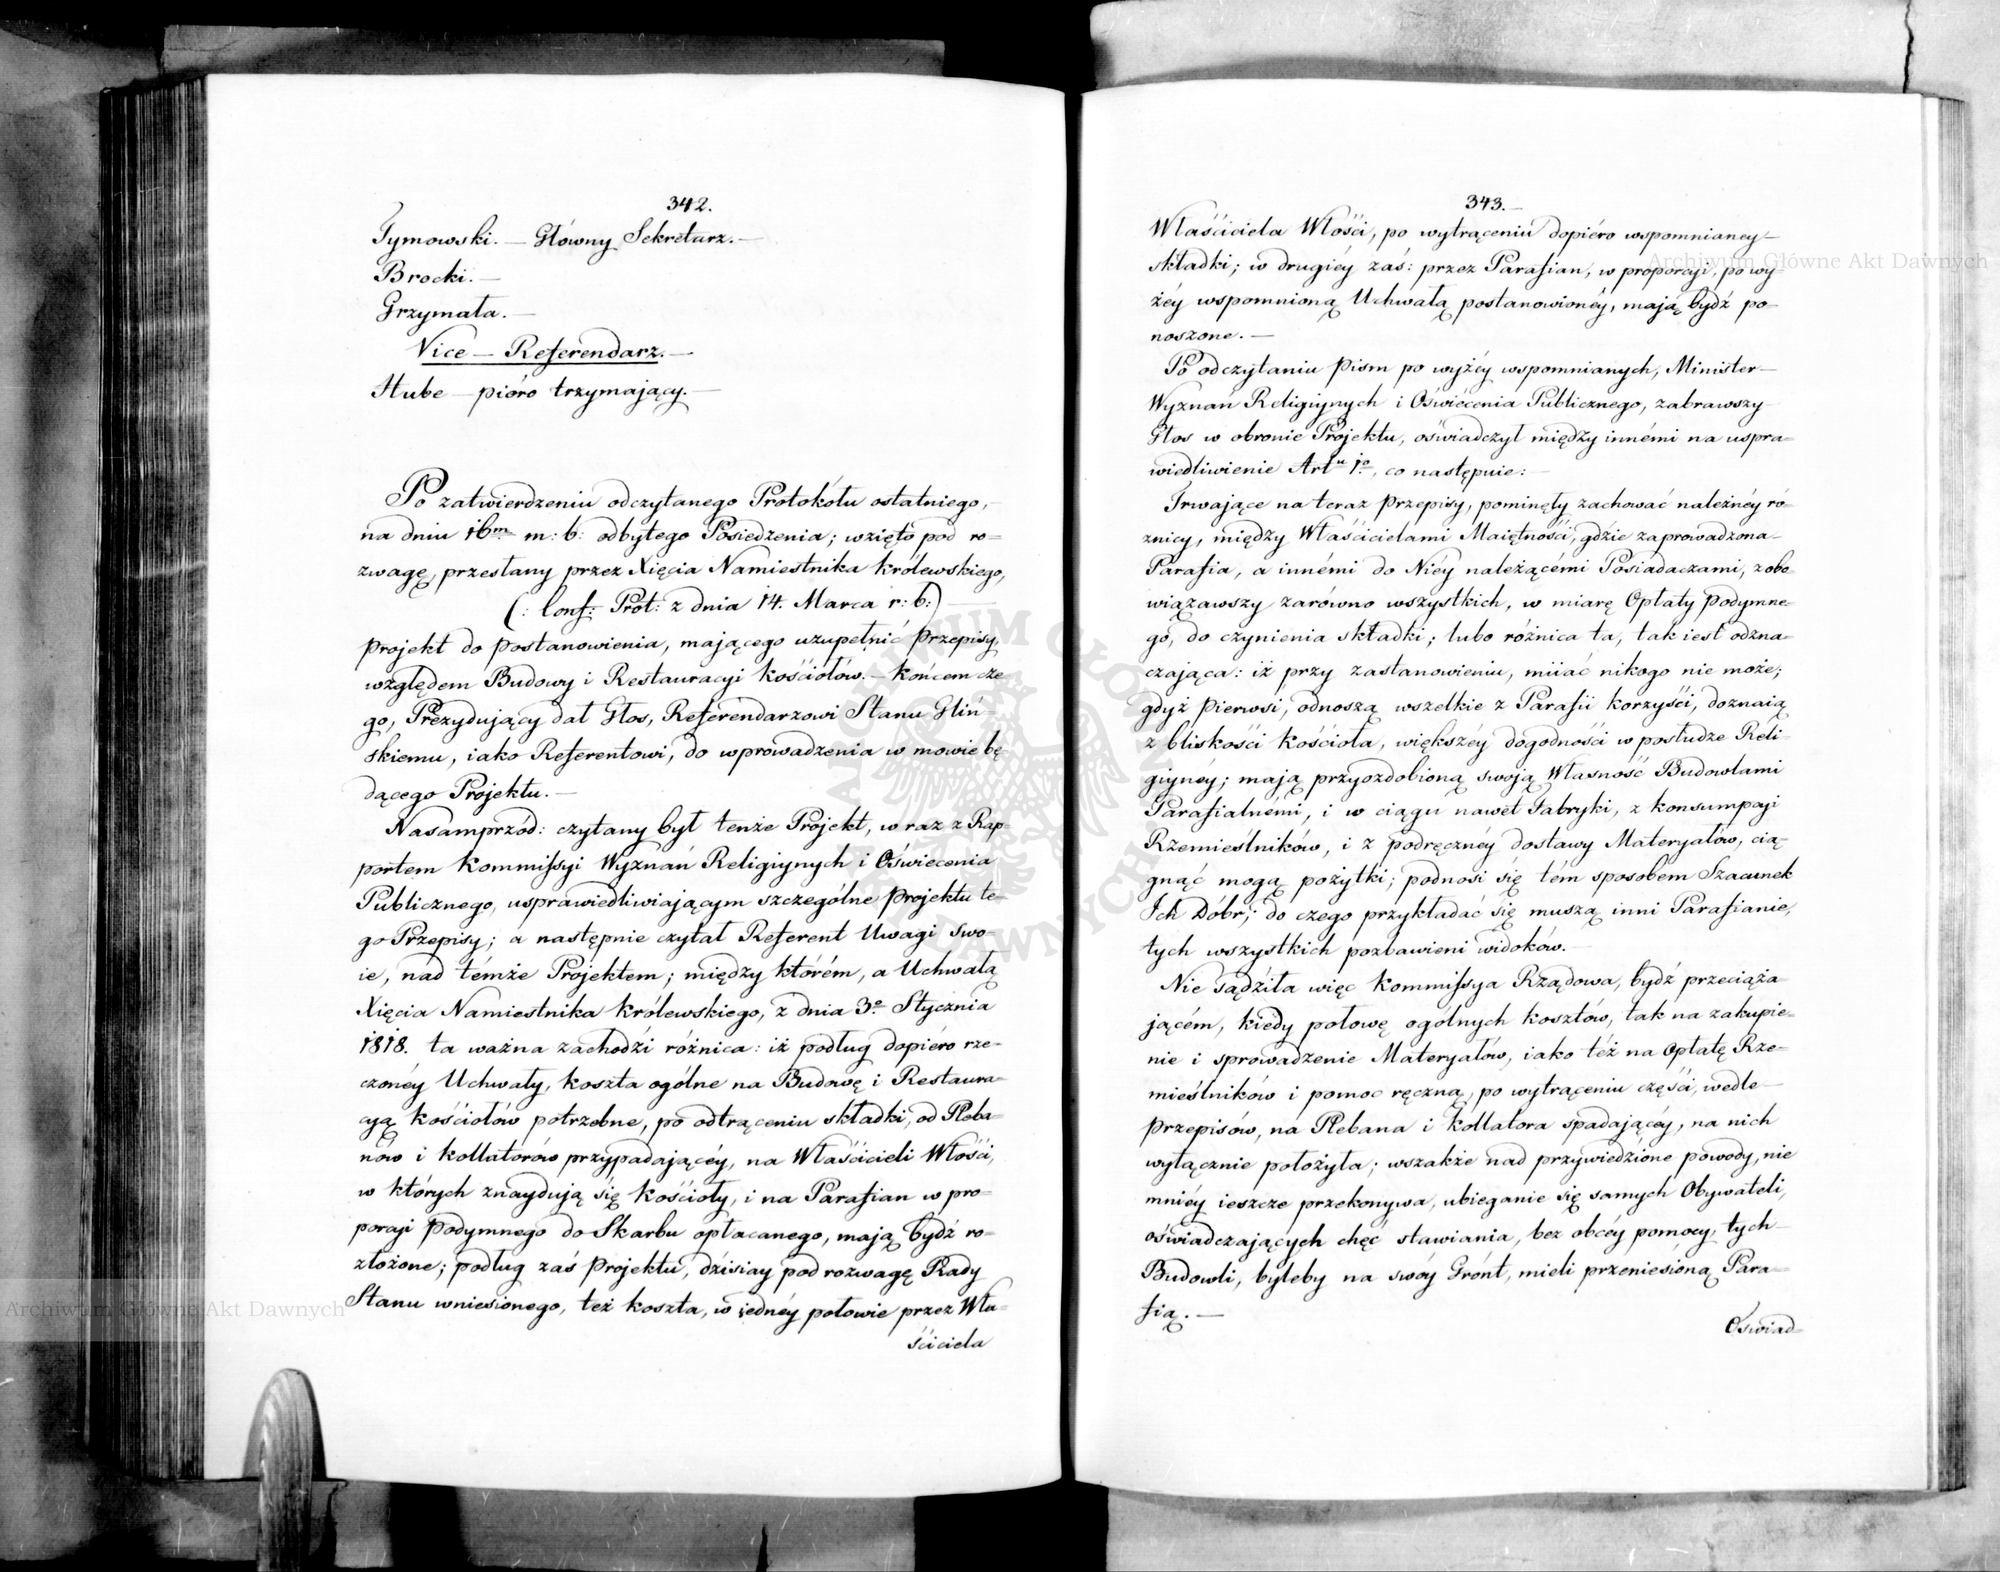 342.
Tymowski. — Główny Sekretarz. —
Brocki. —
Grzymała. —
Vice — Referendarz. —
Hube — pióro trzymający. —
Po zatwierdzeniu odczytanego Protokółu ostatniego, —
na dniu 16m m: b: odbytego Posiedzenia; wzięto pod ro=
zwagę, przesłany przez Xięcia Namiestnika Królewskiego,
(: Conf: Prot: z dnia 14. Marca r: b:) —
Projekt do Postanowienia, mającego uzupełnić Przepisy,
względem Budowy i Restauracyi Kościołów. — Końcem cze
go, Prezydujący dał Głos, Referendarzowi Stanu Gliń=
skiemu, iako Referentowi, do wprowadzenia w mowie bę
dącego Projektu. —
Nasamprzód: czytany był tenże Projekt, w raz z Rap=
portem Kommissyi Wyznań Religiynych i Oświecenia
Publicznego, usprawiedliwiającym szczególne Projektu te=
go Przepisy; a następnie czytał Referent Uwagi swo=
ie, nad témże Projektem; między którém, a Uchwałą
Xięcia Namiestnika Królewskiego, z dnia 3o Stycznia
1818. ta ważna zachodzi różnica: iż podług dopiéro rze=
czonéy Uchwały, koszta ogólne na Budowę i Restaura=
cyą Kościołów potrzebne, po odtrąceniu składki, od Pleba=
nów i Kollatorów przypadającéy, na Właścicieli Włości,
w których znayduią się Kościoły, i na Parafian w pro=
porcyi Podymnego do Skarbu opłacanego, mają bydź ro=
złożone; podług zaś Projektu, dzisiay pod rozwagę Rady
Stanu wniesionego, też koszta, w iednéy połowie przez Wła=
ściciela
343. —
Właściciela Włości, po wytrąceniu dopiéro wspomnianey —
składki; w drugiéy zaś: przez Parafian, w proporcyi, po wy=
żéy wspomnioną Uchwałą postanowionéy, mają bydź po=
noszone. —
Po odczytaniu Pism po wyżéy wspomnianych, Minister —
Wyznań Religiynych i Oświécenia Publicznego, zabrawszy —
Głos w obronie Projektu, oświadczył między innémi na uspra=
wiedliwienie Artu 1o, co następuie: —
Trwające na teraz Przepisy, pominęły zachować należnéy ró=
żnicy, między Właścicielami Maiętności, gdzie zaprowadzona —
Parafia, a innémi do Niéy należącémi Posiadaczami, zobo=
wiązawszy zarówno wszystkich, w miarę Opłaty Podymne=
go, do czynienia składki; lubo różnica ta, tak iest odzna=
czająca: iż przy zastanowieniu, miiać nikogo nie może;
gdyż Piérwsi, odnoszą wszelkie z Parafii korzyści, doznaią
z bliskości Kościoła, większéy dogodności w posłudze Reli=
giynéy; mają przyozdobioną swoją Własność Budowlami
Parafialnémi, i w ciągu nawet Fabryki, z konsumpcyi
Rzemieślników, i z podręcznéy dostawy Materyałów, cią=
gnąć mogą pożytki; podnosi się tém sposobem Szacunek
Ich Dóbr; do czego przykładać się muszą inni Parafianie,
tych wszystkich pozbawieni widoków. —
Nie sądziła więc Kommissya Rządowa, bydź przeciąża=
jącém, kiedy połowę ogólnych kosztów, tak na zakupie=
nie i sprowadzenie Materyałów, iako téż na Opłatę Rze=
mieślników i pomoc ręczną, po wytrąceniu części, wedle —
Przepisów, na Plebana i Kollatora spadającéy, na nich
wyłącznie położyła; wszakże nad przywiedzione powody, nie
mniéy ieszcze przekonywa, ubieganie się samych Obywateli,
oświadczających chęć stawiania, bez obcéy pomocy, tych —
Budowli, byleby na swóy Grónt, mieli przeniesioną Para=
fią. —
Oswiad=
Archiwum Główne Akt Dawnych
Archiwum Główne Akt Dawnych
ARCHIWUM GŁÓWNE AKT DAWNYCH